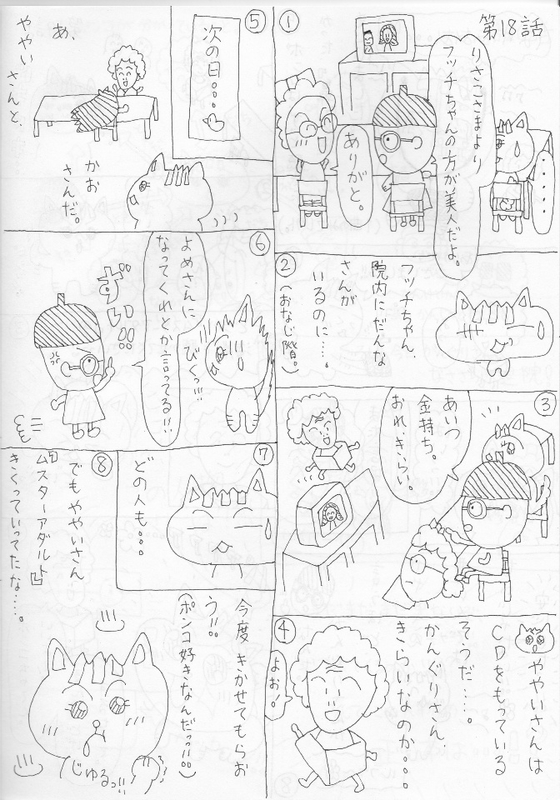 第18話
①
りさこさまより
フッチちゃんの方が美人だよ。
ありがと。
②
フッチちゃん、
院内にだんな
さんが
いるのに…。
(おなじ階。)
③
あいつ
金持ち。
おれ、きらい。
④
ややいさんは
CDをもっている
そうだ…。
かんぐりさん、
きらいなのか…。
よお!
⑤
次の日。。。
あ、
ややい さんと、
かお
さんだ。
⑥
よめさんに
なってくれとか言ってる!!、
びくっ!!!
ずい!!
⑦
どの人も・・・
⑧
でもややいさん
『ムスターアダルト』
きくっていってたな…。
今度きかせてもらお
う!!。
(ポンコ好きなんだっ!!。)
じゅるっ!!